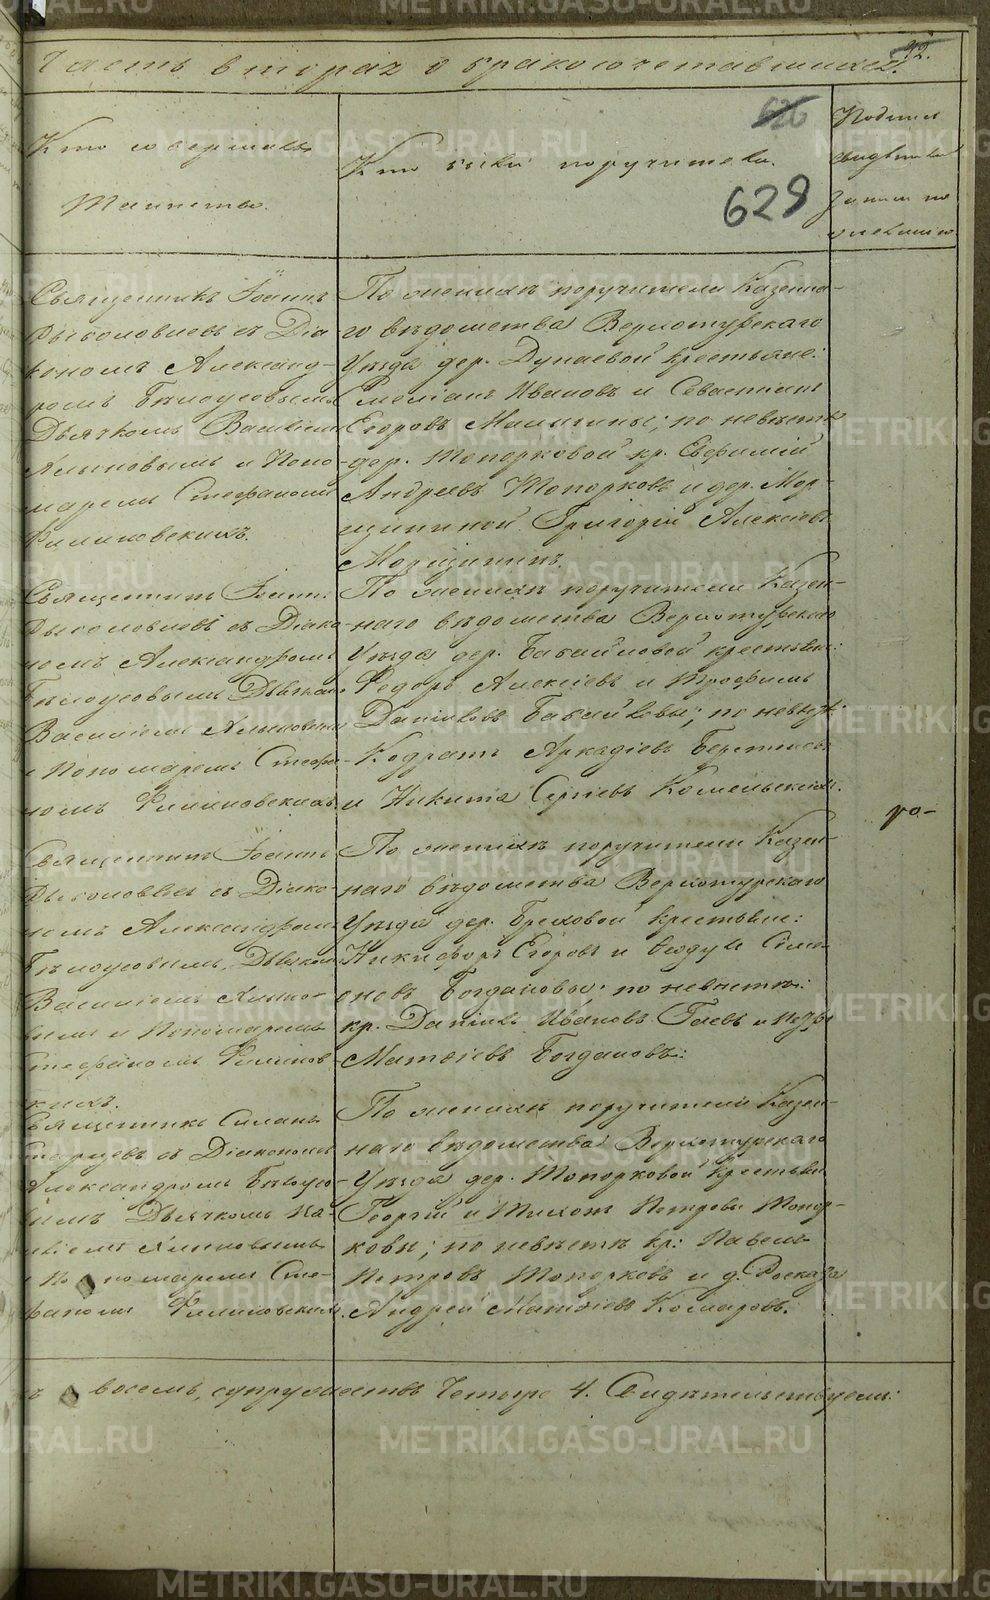 Часть вторая о бракосочетавшихся.
92.
626
629
Кто совершалъ
Таинство.
Кто были поручители.
Подписи
свидѣтелей
записи по
желанію.
Священникъ Іоаннъ
съ Діа-
кономъ Александ-
ромъ Бѣлоусовымъ
Дьячкомъ Василіем
и Поно-
маремъ Стефаномъ
Филиновскихъ.
По женихѣ поручители Казенна-
го вѣдомства Верхотурскаго
Уѣзда дер. Дунаевой крестьяне:
Емеліанъ Ивановъ и Севастіанъ
Егоровъ Малыгины; по невѣстѣ
дер. Топорковой кр. Евфимій
Андреевъ Топорковъ и дер. Мор-
щининой Григорій Алексѣевъ
Морщининъ.
Священникъ Іоаннъ
съ Діако-
номъ Александромъ
Бѣлоусовымъ Дьячкомъ
Василіемъ
и Пономаремъ Стефа-
номъ Филиновскихъ
По женихѣ поручители Казен-
наго вѣдомства Верхотурскаго
Уѣзда дер. Бабайловой крестьяне:
Федоръ Алексіевъ и Трофимъ
Даниловъ Бабайловы; по невѣстѣ:
Кодратъ Аркадіевъ
и Никита Сергіевъ Комельскихъ.
Священникъ Іоаннъ
съ Діако-
номъ Александромъ
Бѣлоусовымъ, Дьячкомъ
Василіемъ
и Пономаремъ
Стефаномъ Филинов-
скихъ.
По женихѣ поручители Казен-
наго вѣдомства Верхотурскаго
Уѣзда дер. Бреховой крестьяне:
Никифоръ Егоровъ и Ѳедулъ Симе-
оновъ Богдановы; по невѣстѣ:
кр. Даніилъ Ивановъ Гаевъ и
Матѳіевъ Богдановъ:
Священникъ Симеонъ
Старцевъ съ Діакономъ
Александромъ Бѣлоусо-
вымъ Дьячкомъ Ва-
силіемъ
и Пономаремъ Сте-
фаномъ Филиновскихъ
По женихѣ поручители Казен-
наго вѣдомства Верхотурскаго
Уѣзда дер. Топорковой крестьяне
Георгій и Тихонъ Петровы Топор-
ковы; по невѣстѣ кр: Павелъ
Петровъ Топорковъ и д.
Андрей Матѳіевъ Комаровъ.
восемь, супружествъ Четыре 4. Свидѣтельствуемъ:
METRIKI.GASO-URAL.RU